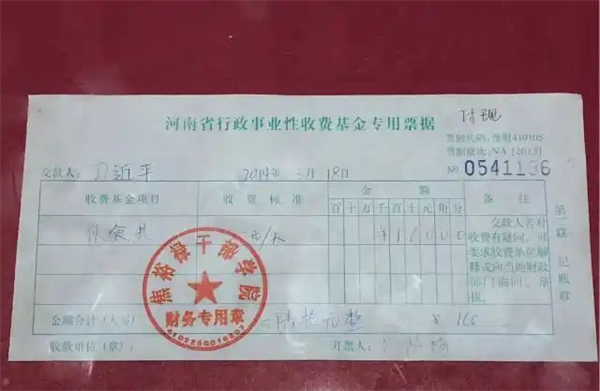 河南省行政事业性收费基金专用票据
付现
票据代码:豫财410105
票据批次:NA [2013]
交款人: 习近平 2014年 3月 18日
№ 0541136
收费基金项目 收费标准 金额 备注
百十万千百十元角分
伙食费 元/天 ¥ 1 6 0 0 0
交款人若对
收费有疑问,可
要求收费单位解
释或向当地财政
部门询问、举
报。
第一联 记账联
焦裕禄干部学院
财务专用章
4102260016207
金额合计(大写) 陆拾元整 ¥ 160
收款单位(章): 开票人: